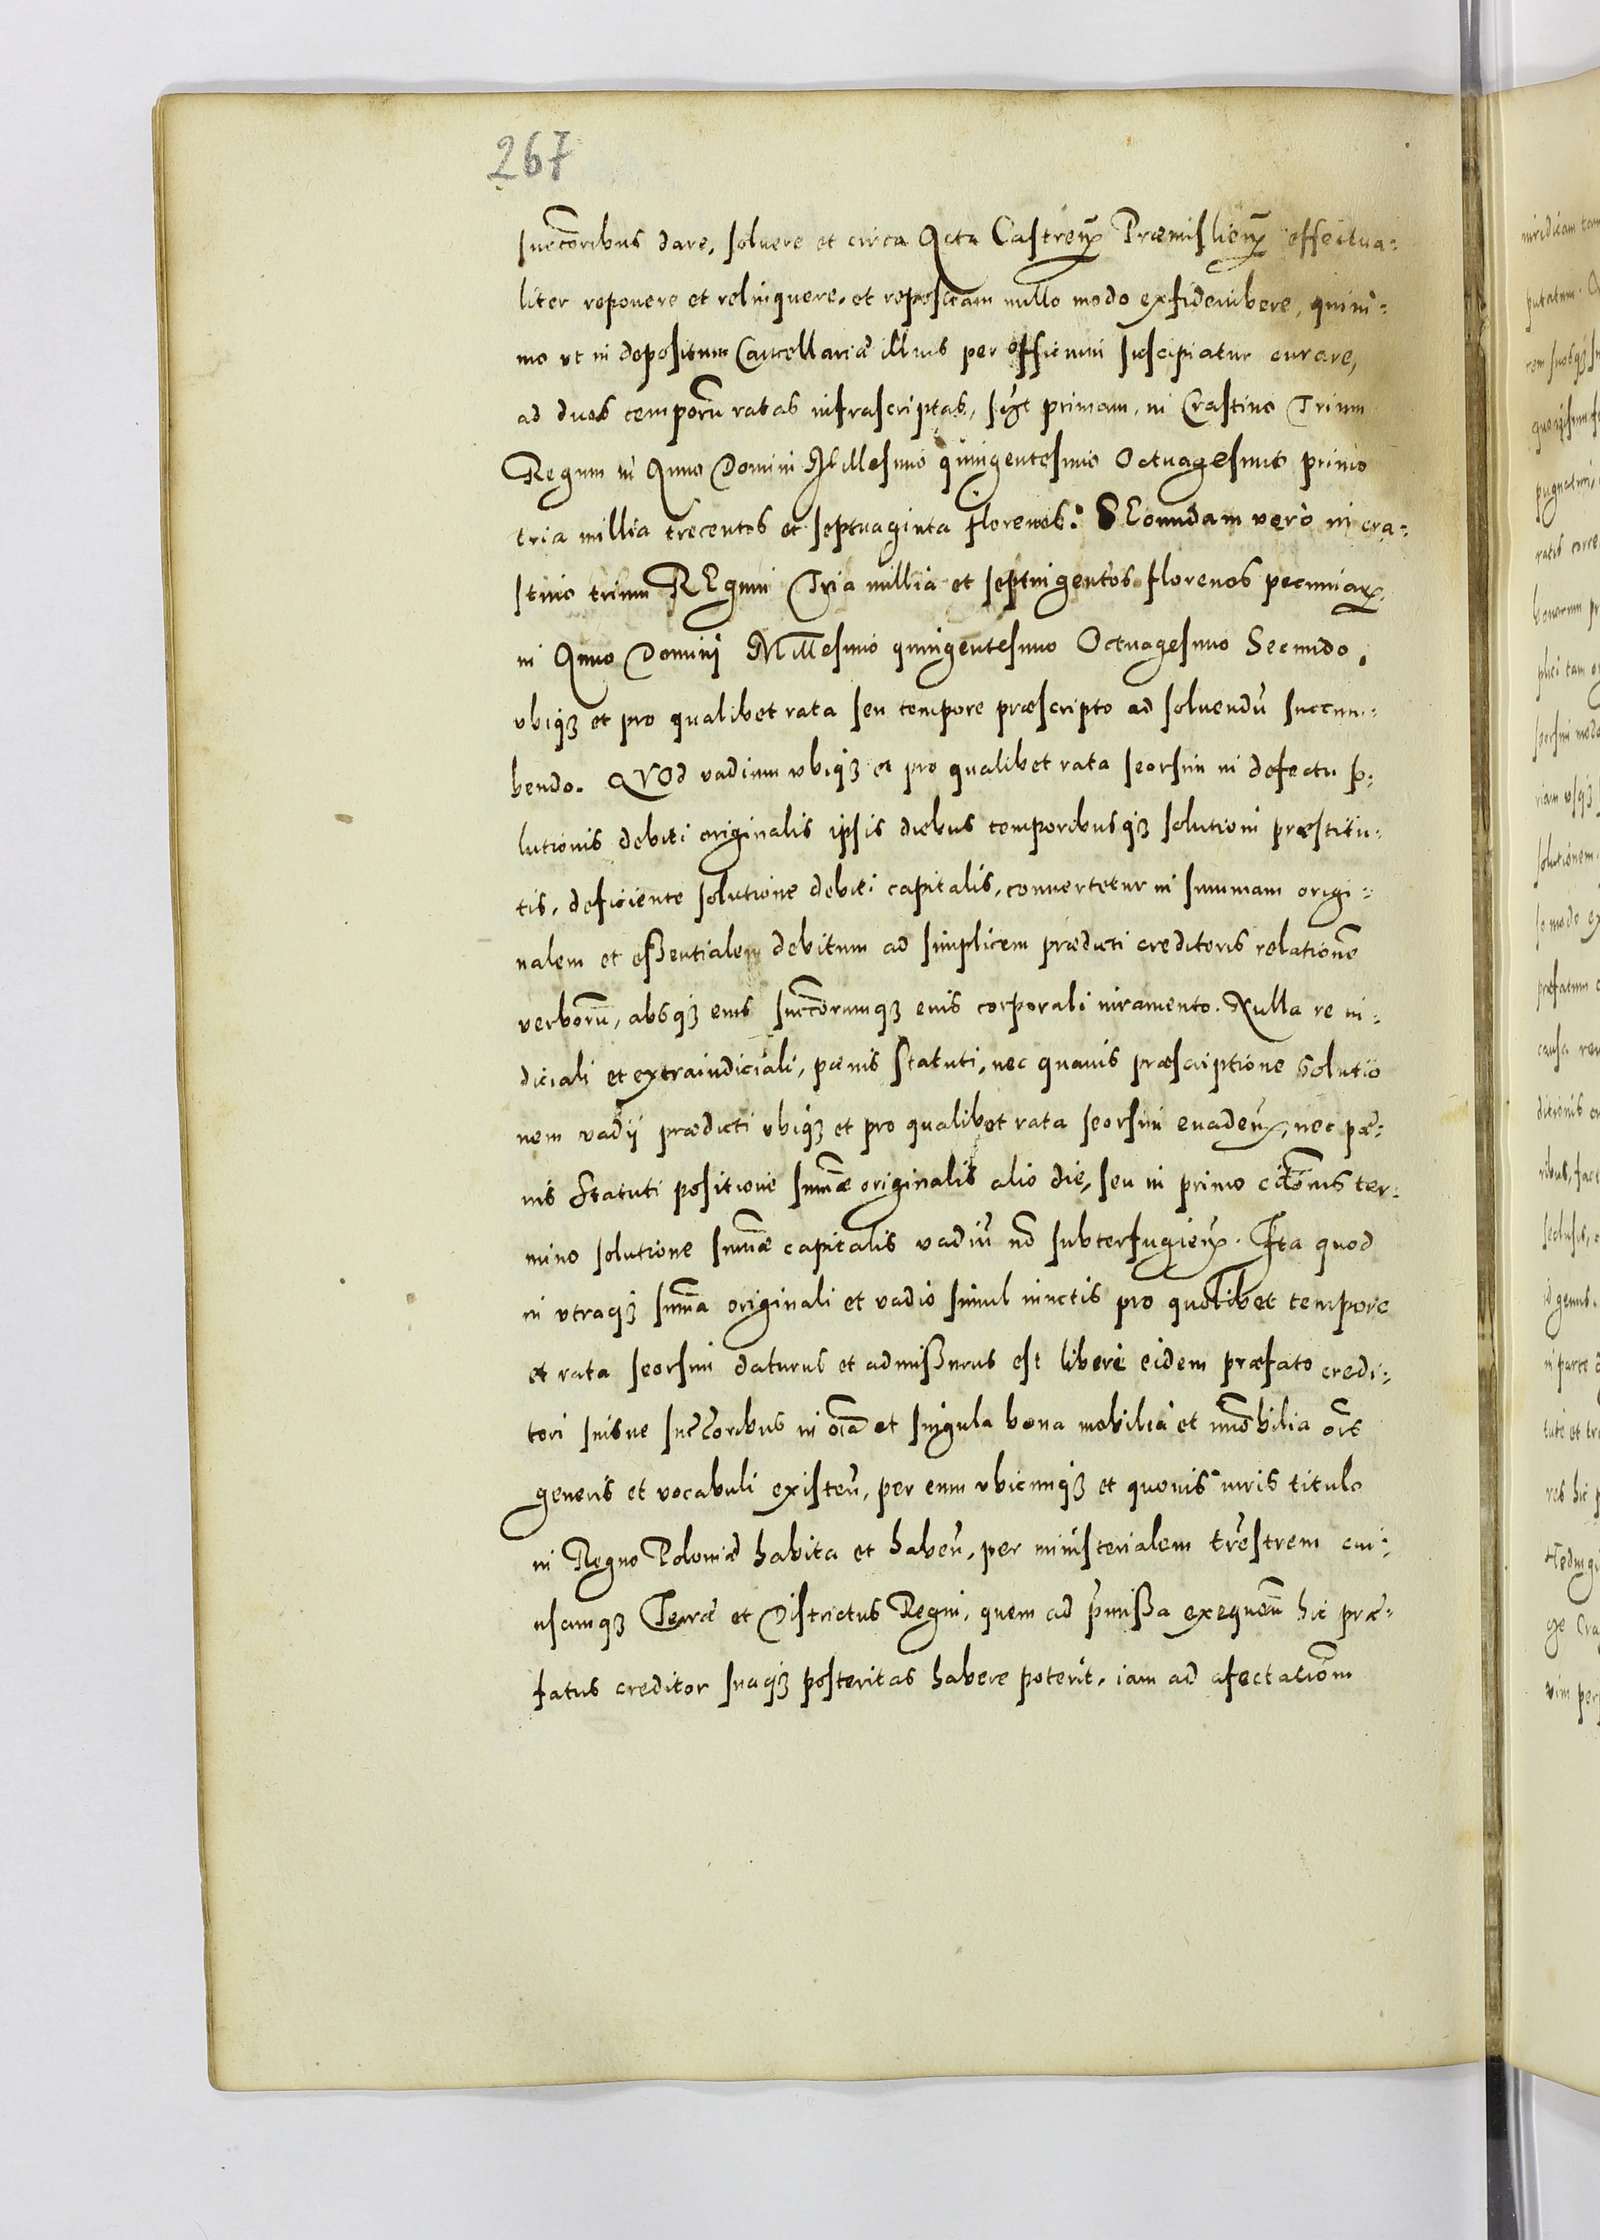 267
succoribus dare, soluere et circa Acta Castren Præmislien effectua-
liter reponere et relinquere, et repositam nullo modo exfideiubere, quini-
mo vt in depositum Cancellariæ illius per officium suscipiatur curare,
ad duos temporu ratas infrascriptas, primam, in Crastino Trium
Regum in Anno Domini Millesimo quingentesimo Octuagesimo primo
tria millia trecentos et septuaginta florenos. SEcundam verò in cra-
stino trium REgum Tria millia et septingentos florenos pecuniar
in Anno Domini Millesimo quingentesimo Octuagesimo Secundo,
vbiqz et pro qualibet rata seu tempore præscripto ad soluendu succum-
bendo. QVOd vadium vbiqz et pro qualibet rata seorsim in defectu so-
lutionis debiti originalis ipsis diebus temporibusqz solutioni præstitu-
tis, deficiente solutione debiti capitalis, conuertetur in summam origi-
nalem et eßentialem debitum ad simplicem prædicti creditoris relatione
verboru, absqz eius succorumqz eius corporali iuramento. Nulla re iu-
diciali et extraiudiciali, pœnis statuti, nec quauis præscriptione solutio
nem vadij prædicti vbiqz et pro qualibet rata seorsim euaden, nec pœ-
nis statuti positione summæ originalis alio die, seu in primo citonis ter-
mino solutione summæ capitalis vadiu no subterfugien. Ita quod
in vtraqz suma originali et vadio simul iunctis pro quolibet tempore
et rata seorsim daturus et admißurus est libere eidem præfato credi-
tori suisue succoribus in oia et singula bona mobilia et imobilia ois
generis et vocabuli existen, per eum vbicunqz et quouis iuris titulo
in Regno Poloniæ habita et haben, per ministerialem trestrem cui-
uscunqz Terræ et Districtus Regni, quem ad pmißa exequen hic præ-
fatus creditor suaqz posteritas habere poterit, iam ad afectatiom